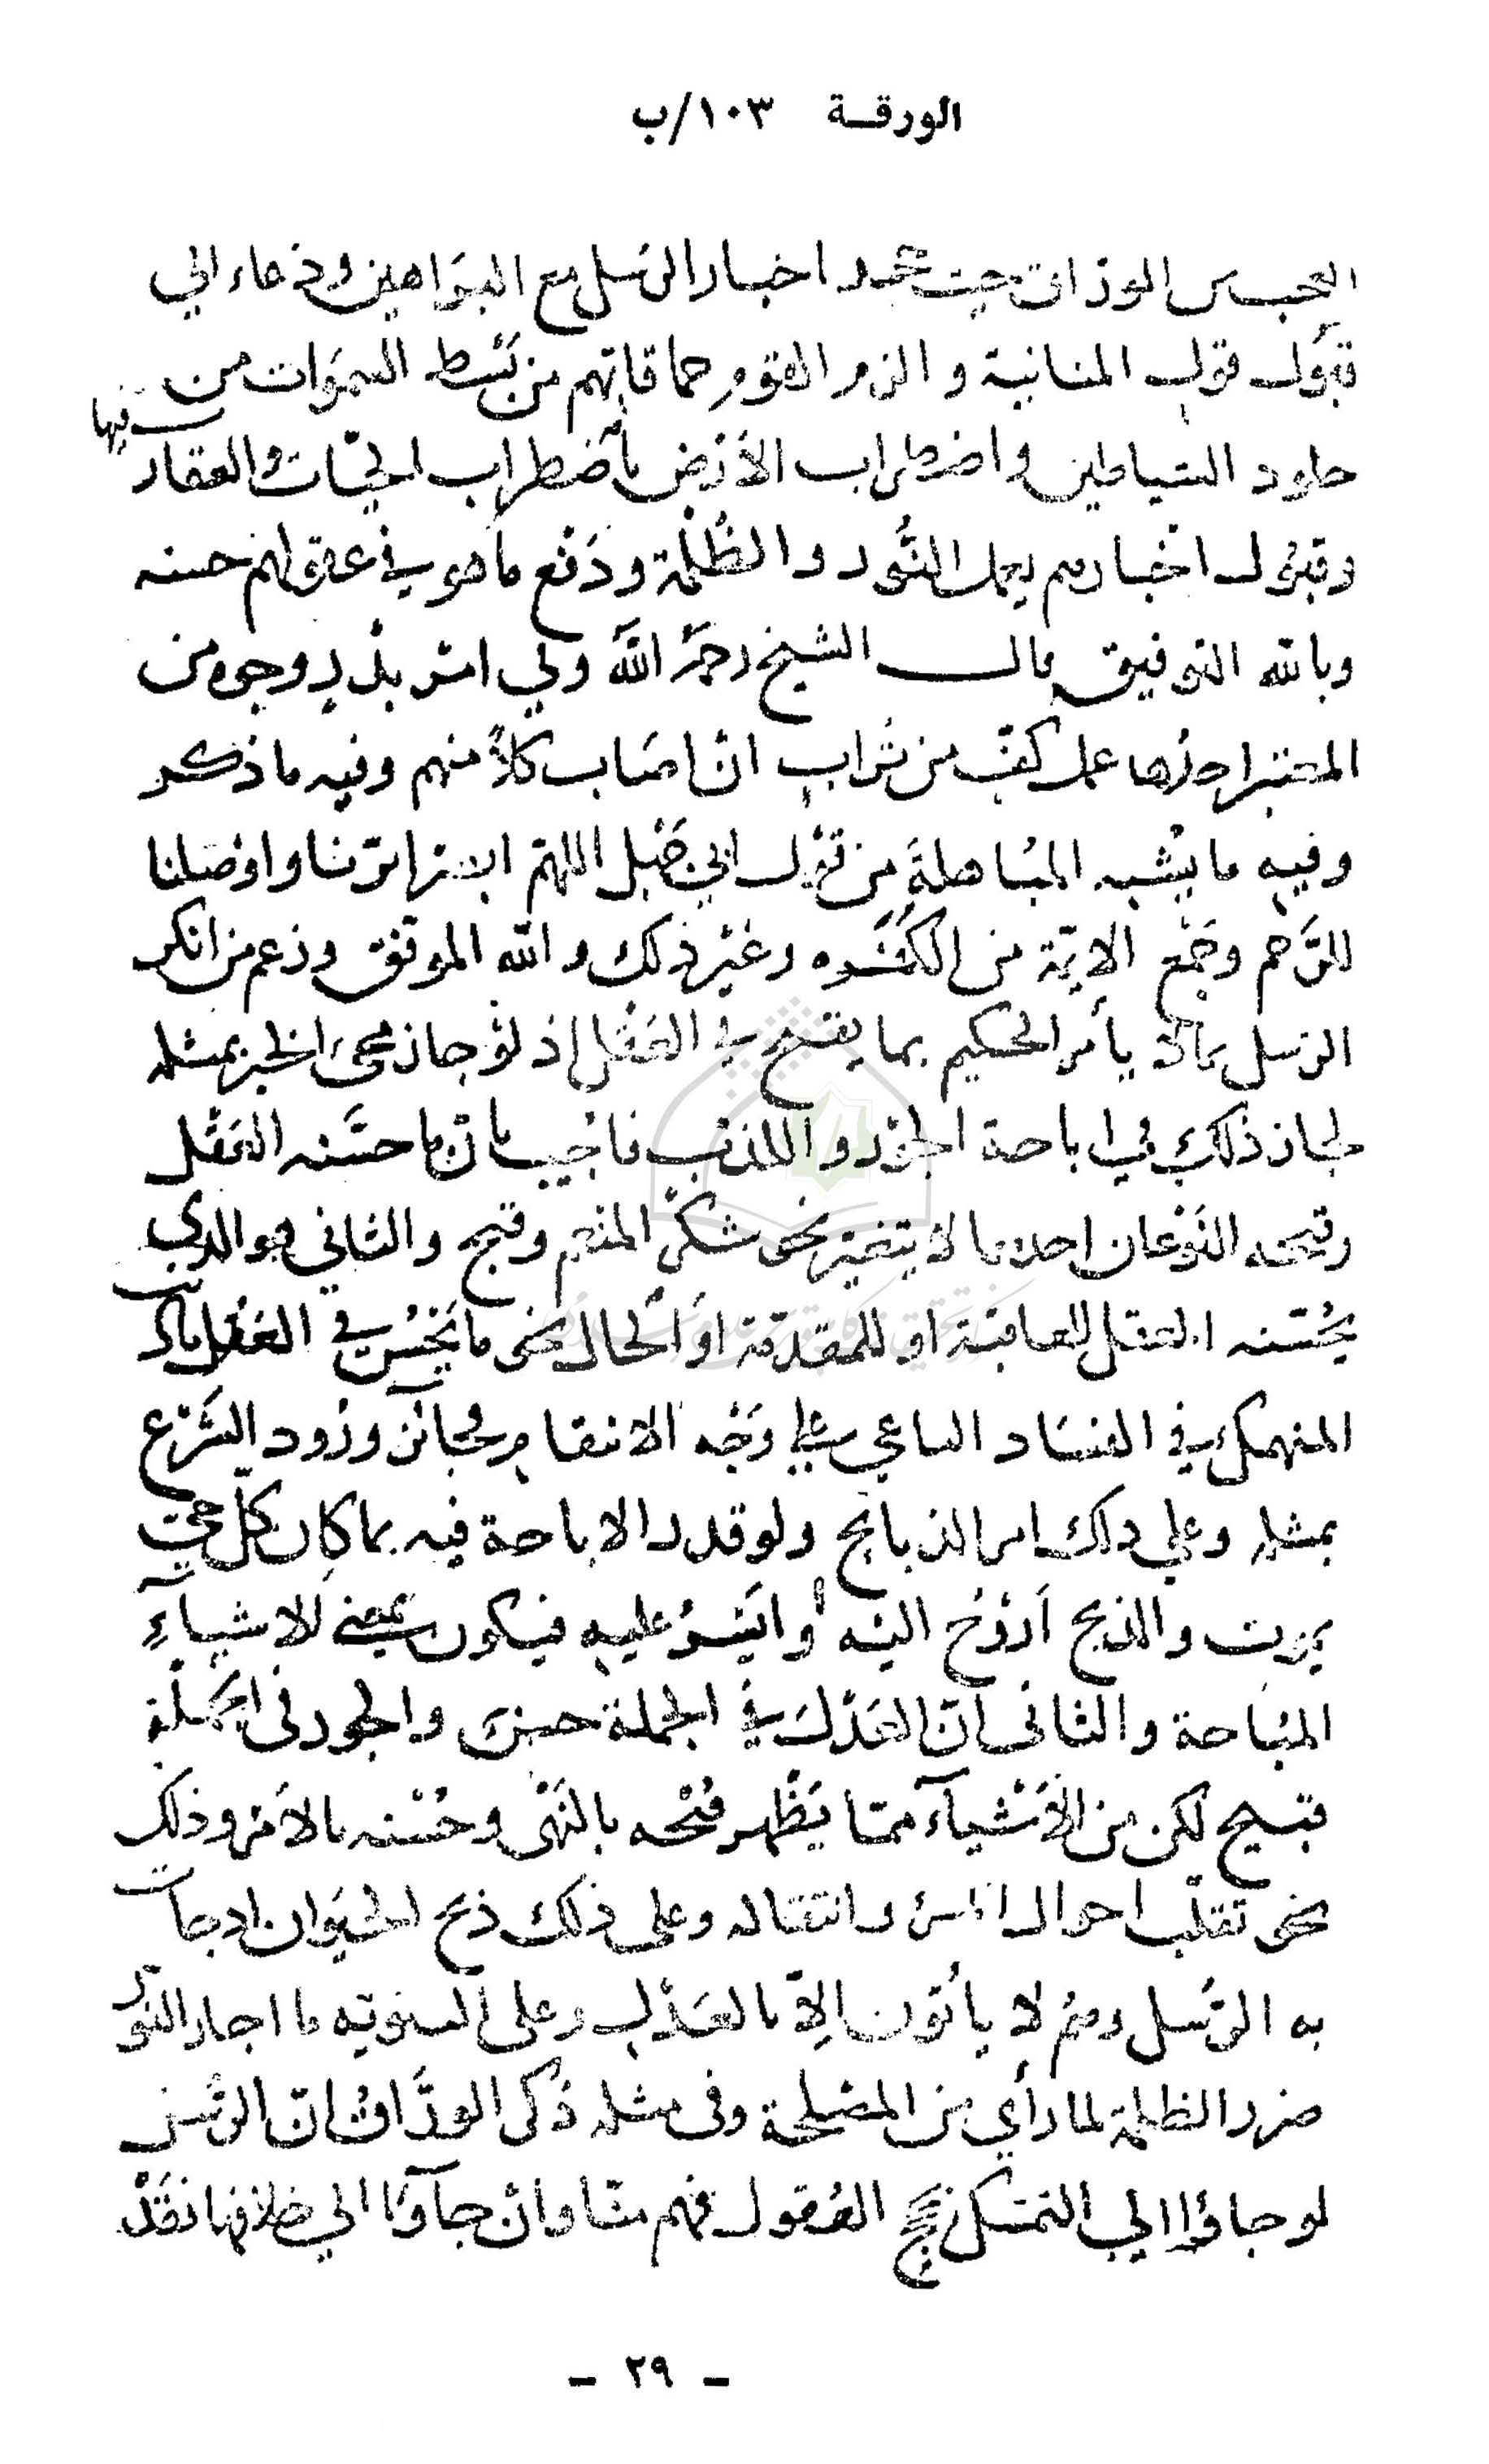 الورقة ١٠٣/ب
العجب من الوراق حيث جحد اخبار الرسل مع البراهين ودعاء الي
قبول قول المنانية والزم القوم حماقاتهم من بسط السموات من
جلود الشياطين واضطراب الأرض باضطراب الحيات والعقار
فيها
وقبول اخبارهم بعمل النور والظلمة ودفع ما هو في عقولهم حسنه
وبالله التوفيق قال الشيخ رحمه الله وفي امر بدر وجوه من
المعتبر احدها عمل كف من تراب ان اصاب كلا منهم وفيه ما ذكر
وفيه ما يشبه المباهلة من قول ابي جهل اللهم ابرنا واوصلنا
للرحم وجمع الاية من الكفره وغير ذلك والله الموفق وزعم من انكر
الرسل بما لا يأمر الحكيم بما يقبح في العقل اذ لو جاز مجئ الخبر بمثله
لجاز ذلك في اباحة الجور والكذب فأجيب بان ما حسنه العقل
وقبحه النوعان احدهما لا يتغير نحو شكر المنعم وقبح والثاني هو الذي
يحسنه العقل للعاقبة او للمقدمة او الحال نحو ما يحسن في العقل بالا
المنهمك في الفساد الساعي علي وجه الانتقام فجائز ورود الشرع
بمثله وعلي ذلك امر الذبائح ولو قدر الاباحة فيه بما كان كل حي
يموت والذبح أروح اليه أو ايسر عليه فيكون بمعنى للاشياء
المباحة والثانى ان العدل في الجملة حسن والجور فى الجملة
قبيح لكن من الأشياء مما يظهر قبحه بالنهى وحسنه بالامر وذلك
نحو تقلب احوال المرء وانتقاله وعلى ذلك ذبح الحيوان اذ جات
به الرسل وهم لا يأتون إلا بالعدل وعلى الثنويه ما اجاز النور
ضرر الظلمة لما رأي من المصلحة وفى مثله ذكر الوراق ان الرسل
لو جاؤا الي التمسك بحجج العقول فهم منا وان جاوا الي خلافها فقد
- ٢٩ -